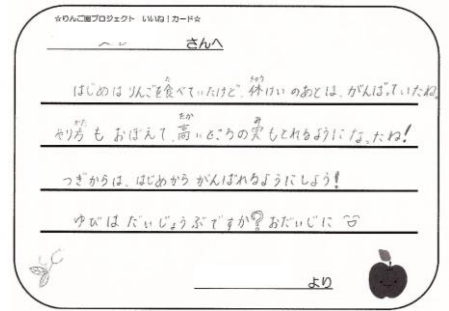 ☆りんご園プロジェクト いいね！カード☆
さんへ
はじめはりんごを食べていたけど、休けいのあとは、がんばっていたね。
やり方もおぼえて、高いところの実もとれるようになったね!
つぎからは、はじめからがんばれるようにしよう!
ゆびはだいじょうぶですか?おだいじに
より